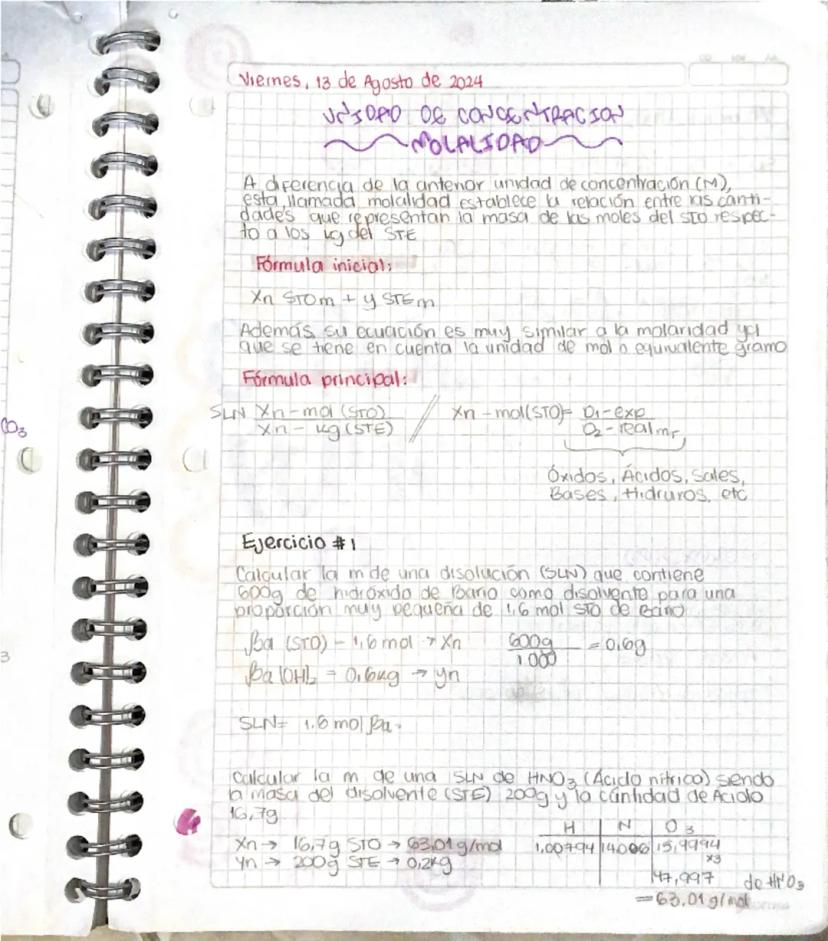 Viernes, 13 de Agosto de 2024
UNIDAD DE CONCENTRACION
MOLALIDAD
A diferencia de la anterior unidad de concentración (M),
esta llamada molalidad establece la relación entre las canti-
dades que representan la masa de las moles del STO respec-
to a los kg del STE
Fórmula inicial:
Xn STOm + y STEm
Además su ecuación es muy similar a la molaridad ya
que se tiene en cuenta la unidad de mol o equivalente gramo
Fórmula principal:
SLN Xn-mol (STO) // Xn-mol(STO)= D1-exp
Xn - kg (STE) D2-real mr
Óxidos, Ácidos, Sales,
Bases, Hidruros, etc
CO3
Ejercicio #1
Calcular la m de una disolución (SLN) que contiene
600g de hidróxido de Bario como disolvente para una
proporción muy pequeña de 1,6 mol STO de Bario
Ba (STO) - 1,6 mol → Xn 600g = 0,6g
1000
Ba(OH)2 = 0,6kg → yn
3
SLN= 1.6 mol Ba.
Calcular la m de una SLN de HNO3 (Ácido nítrico) siendo
la masa del disolvente (STE) 200g y la cantidad de Acido
16,7g
H N O3
Xn → 16,7g STO → 63,01 g/mol 1,00794 14,006 15,9994
Yn → 200g STE → 0,2kg x3
47,997 de HNO3
= 63,01 g/mol